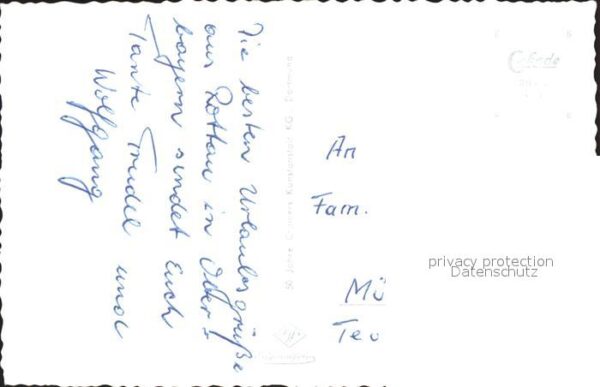 Die besten Urlaubsgrüße
aus Rottau in Ober-
bayern sendet Euch
Tante Trudel und
Wolfgang
An
Fam.
Mü
Teo
privacy protection
Datenschutz
50 Jahre Cramers Kunstanstalt KG. Dortmund